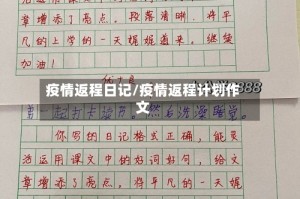 章增添了亮点。段落清晰,将平
凡的上学的一天娓娓道来。继续
加油!
疫情返程日记/疫情返程计划作
文
888
你写的日记格式正确,能灵
活运用课文中的好词好句,给文
章增添了亮点。将平凡的一天娓